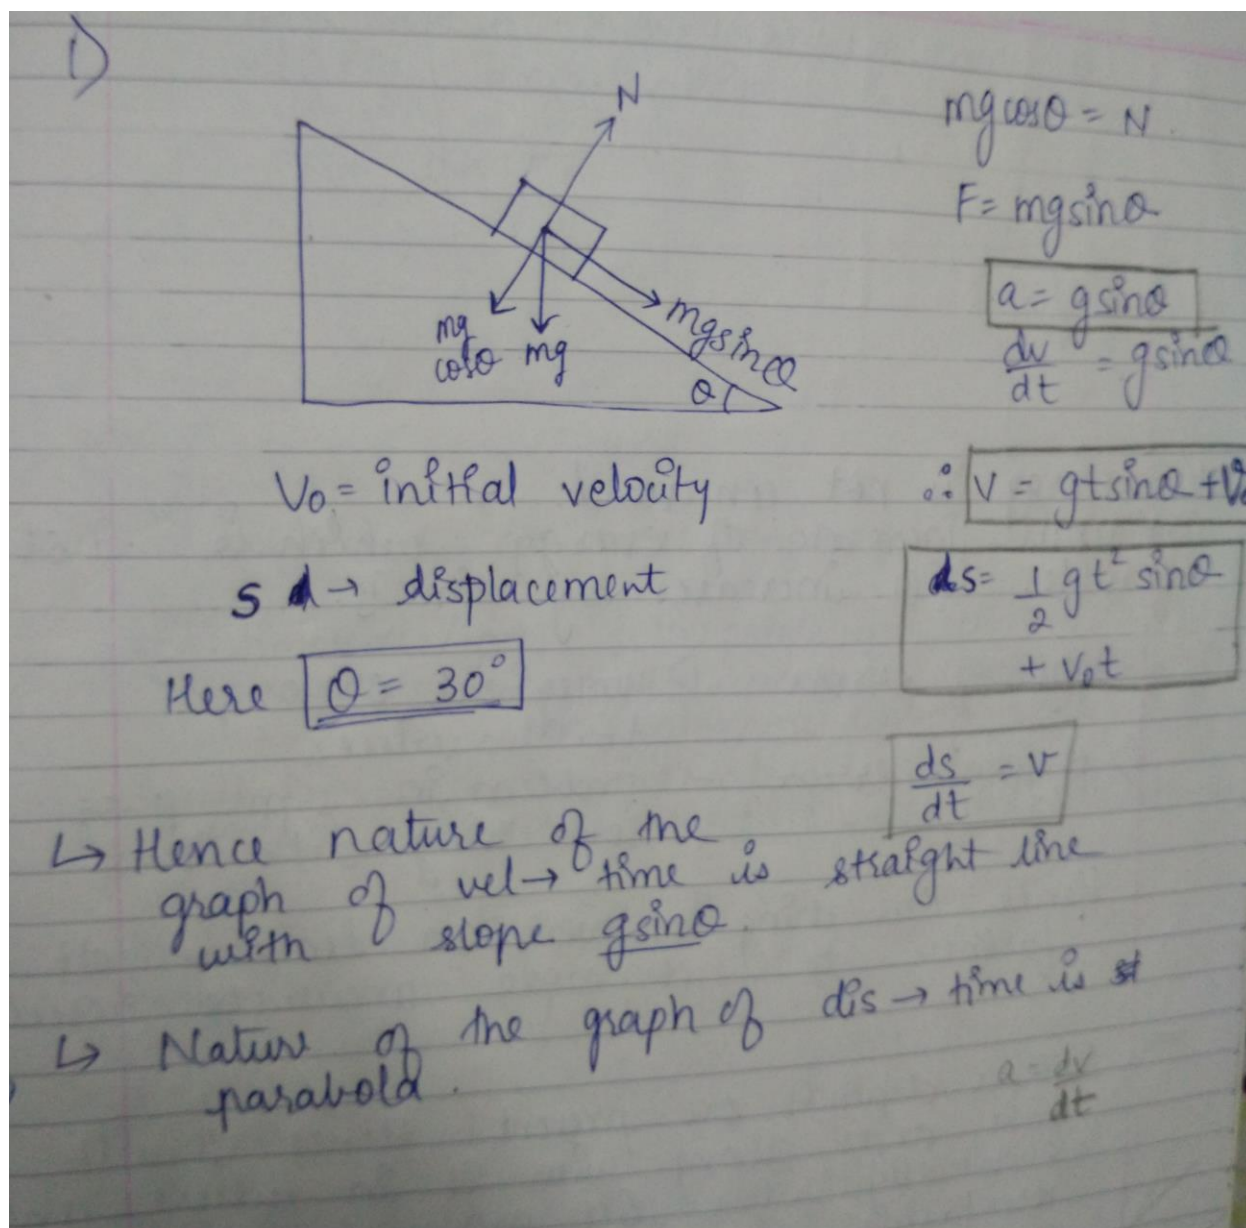 1)
N
mgcosθ = N
F = mgsinθ
a = gsinθ
mg
cosθ
mg
mgsinθ
θ
dv/dt = gsinθ
V₀ = initial velocity
∴ V = gtsinθ + V₀
s → displacement
s = 1/2 gt² sinθ
+ V₀t
Here θ = 30°
ds/dt = V
↳ Hence nature of the
graph of vel → time is straight line
with slope gsinθ.
↳ Nature of the graph of dis → time is
parabola.
a = dv/dt